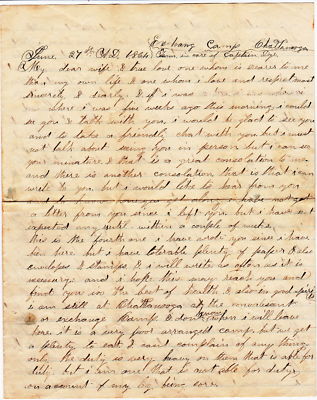 Exchang Camp Chattanooga
June 27th A.D. 1864 Tenn in care of Captain
My dear wife & true love one whom is dearer to me
than my own life & one whom i love and respect most
sincerely & dearly & if i was
where i was five weeks ago this morning i could
see you & talk with you, i would be glad to see you
and to take a friendly chat with you but i must
not talk about seeing you in person but i can see
your minature & that is a great consolation to me
and there is another consolation that is that i can
write to you but i would like to hear from you
and know how you get along i have not got
a letter from you since i left you but i have not
expected any until within a couple of weeks,
this is the fourth one i have wrote you since i have
bin here but i have tolerable plenty of paper & also
envelops & stamps & i will write as often as it is
necessary and i hope this may reach you and
find you in the best of health & also in good spirits
i am still at Chattanooga at the convalesant
or exchange Camp & dont know when i will leave
here it is a very poor arranged camp but we get
a plenty to eat i cant complain of any thing
only the duty is very heavy on them that is able for
duty but i am one that is not able for duty
on account of my leg being sore